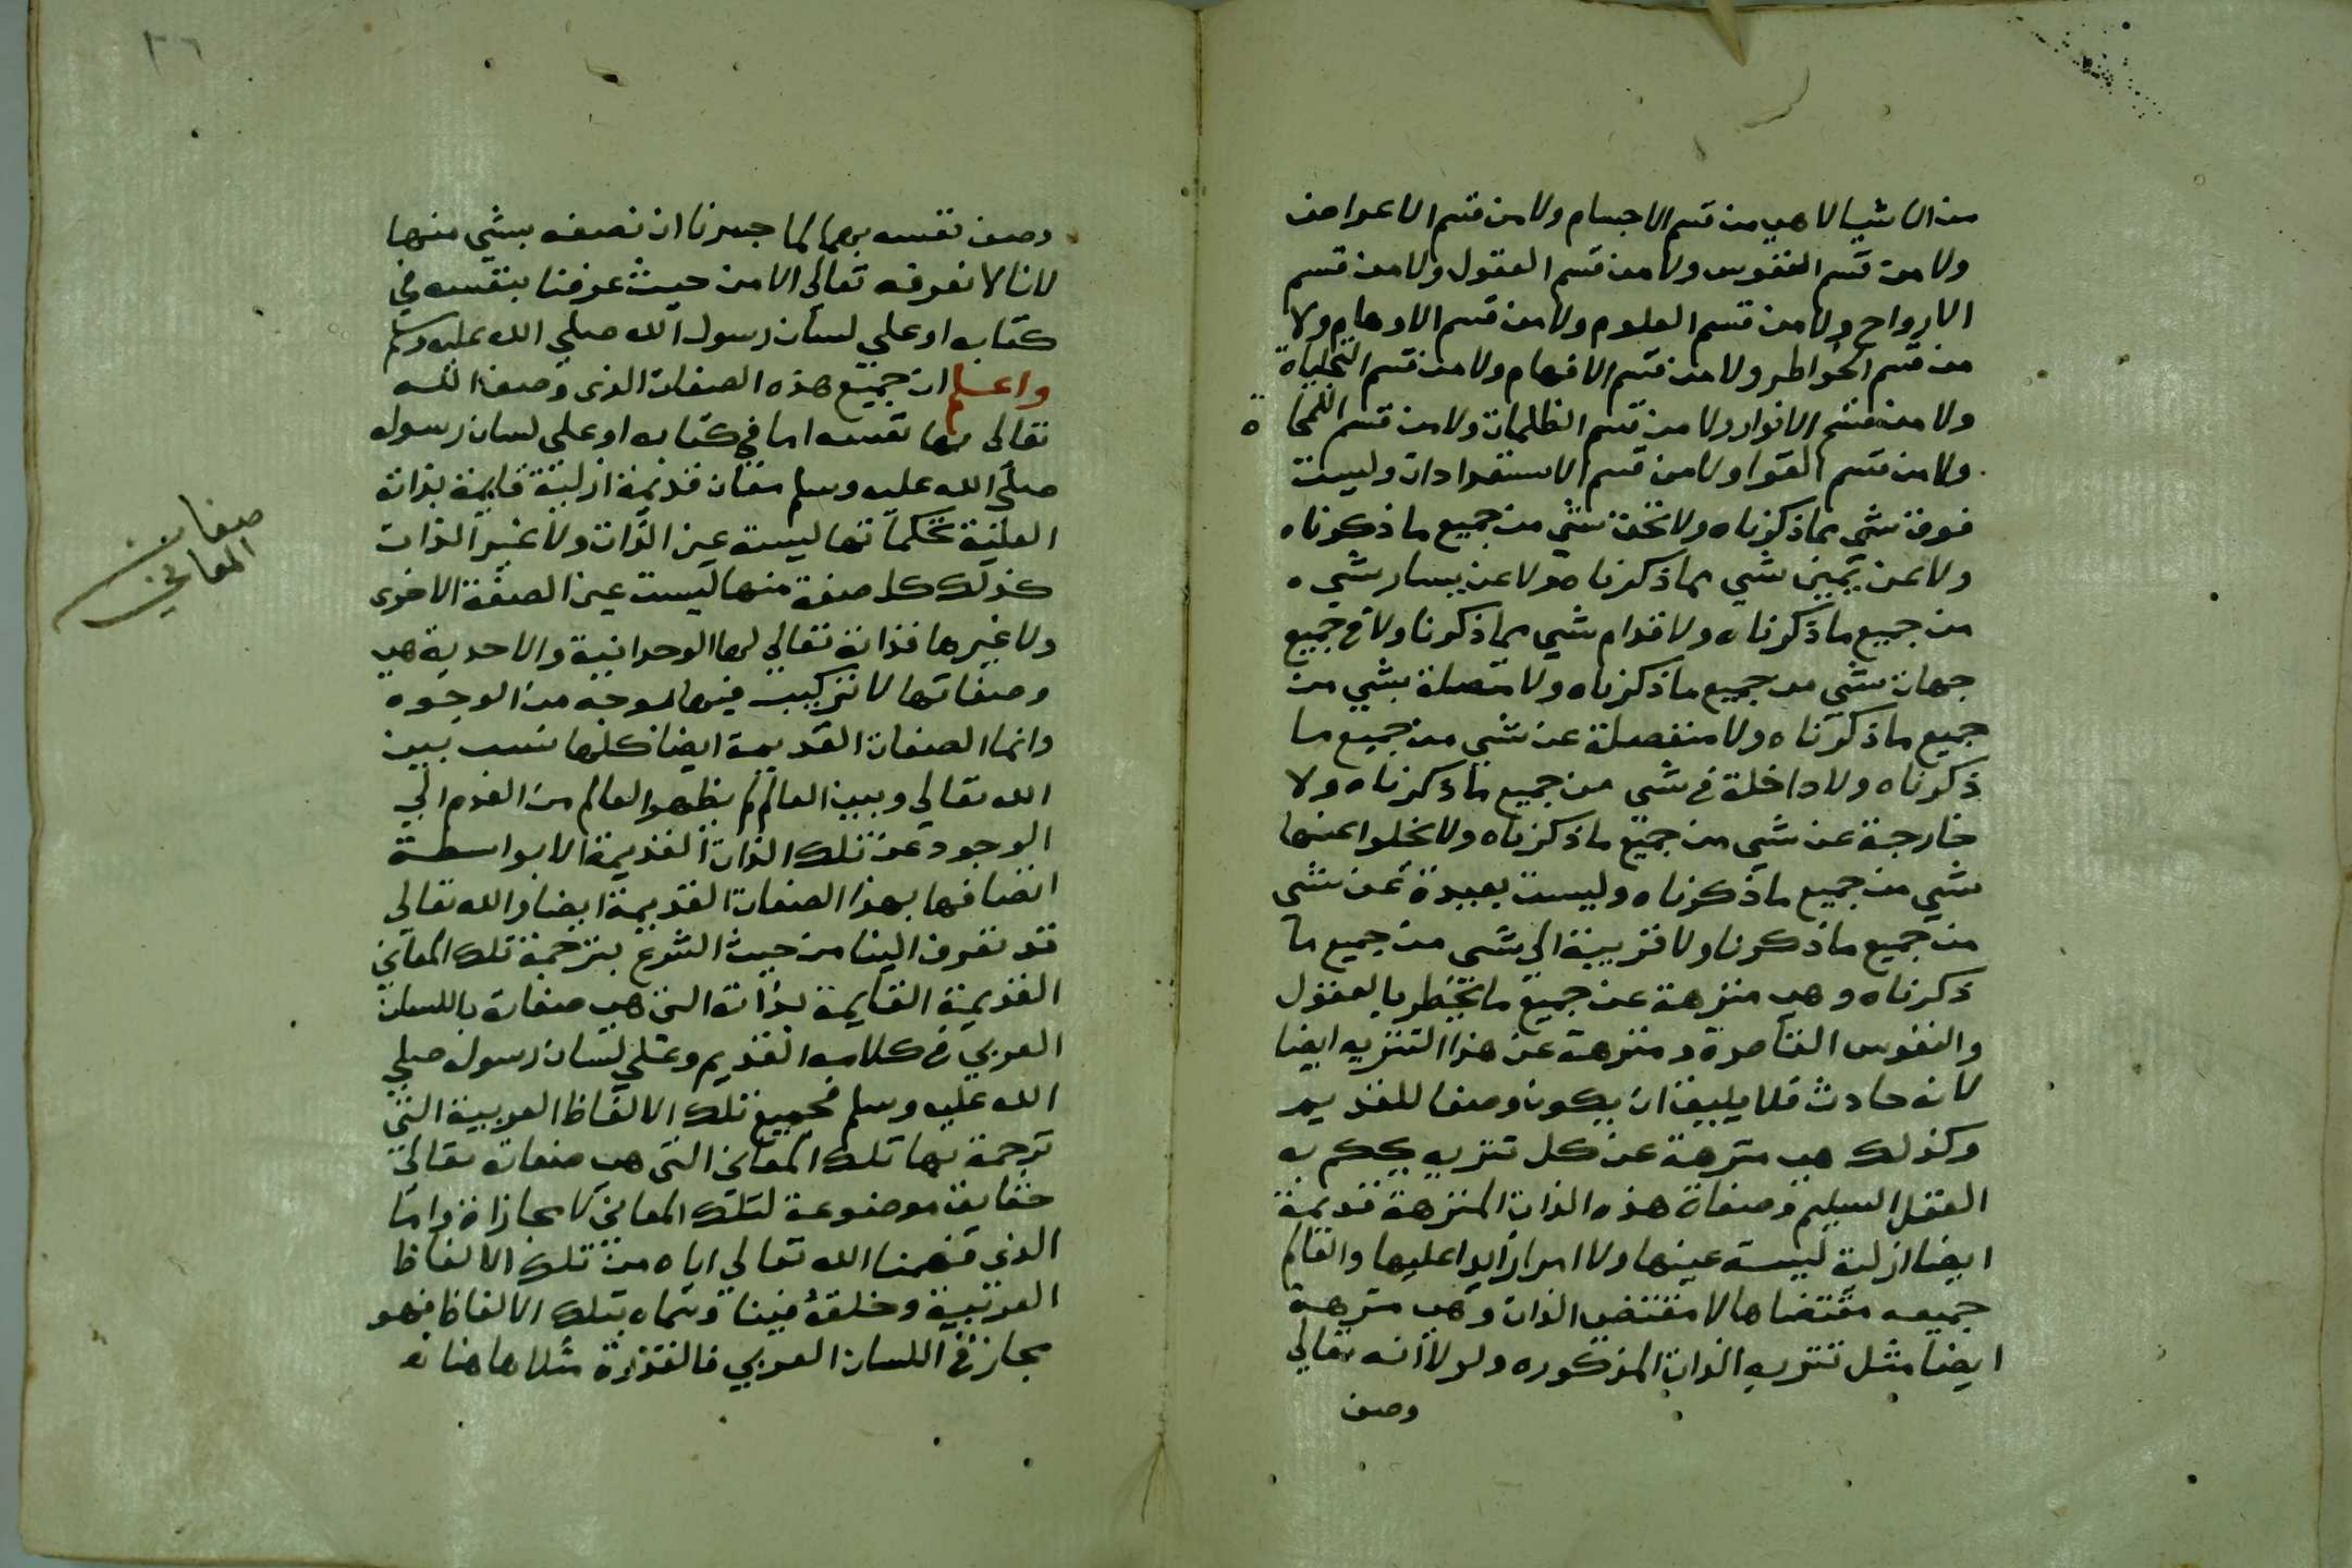 من الاشيا لا هي من قسم الاجسام ولا من قسم الاعراض
ولا من قسم النفوس ولا من قسم العقول ولا من قسم
الارواح ولا من قسم العلوم ولا من قسم الاوهام ولا
من قسم الخواطر ولا من قسم الافهام ولا من قسم التجلياة
ولا من قسم الانوار ولا من قسم الظلمات ولا من قسم
ولا من قسم القوا ولا من قسم الاستعدادات وليست
فوق شي مما ذكرناه ولا تحت شي من جميع ما ذكرناه
ولا عن يمين شي مما ذكرناه ولا عن يسار شي
من جميع ما ذكرناه ولا قدام شي مما ذكرنا ولا في جميع
جهات شي من جميع ما ذكرناه ولا متصلة بشي من
جميع ما ذكرناه ولا منفصلة عن شي من جميع ما
ذكرناه ولا داخلة في شي من جميع ما ذكرناه ولا
خارجة عن شي من جميع ما ذكرناه ولا يخلوا عنها
شي من جميع ما ذكرناه وليست بعيدة عن شي
من جميع ما ذكرنا ولا قريبة الي شي من جميع ما
ذكرناه وهي منزهة عن جميع ما يخطر بالعقول
والنفوس القاصرة ومنزهة عن هذا التنزيه ايضا
لانه حادث فلا يليق ان يكون وصفا للقديم
وكذلك هي منزهة عن كل تنزيه يحكم به
العقل السليم وصفاة هذه الذات المنزهة قديمة
ايضا ازلية ليسة عينها ولا امرا زايدا عليها والقايم
جميعه مقتضاها لا مقتضى الذات وهي منزهة
ايضا مثل تنزيه الذات المذكوره ولولا انه تعالي
وصف
٣٦
وصف نفسه بها لما جسرنا ان نصفه بشي منها
لاننا لا نعرفه تعالى الا من حيث عرفنا بنفسه في
كتابه او علي لسان رسول الله صلي الله عليه وسلم
واعلم ان جميع هذه الصفات الذي وصف الله
تعالى بها نفسه اما في كتابه او على لسان رسوله
صلي الله عليه وسلم صفات قديمة ازلية قايمة بذاته
العلية تحكما تها ليسة عين الذات ولا غير الذات
كذلك كل صفة منها ليست عين الصفة الاخرى
ولا غيرها فذاته تعالي لها الوحدانية والاحدية هي
وصفاتها لا تركيب فيها بوجه من الوجوه
وانما الصفات القديمة ايضا كلها نسب بين
الله تعالي وبين العالم لم يظهر العالم من العدم الي
الوجود عن تلك الذات القديمة الا بواسطة
اتصافها بهذا الصفات القديمة ايضا والله تعالى
قد تعرف الينا من حيث الشرع بترجمة تلك المعاني
القديمة القايمة بذاته التي هي صفاته باللسان
العربي في كلامه القديم وعلي لسان رسوله صلي
الله عليه وسلم فجميع تلك الالفاظ العربية التي
ترجمة بها تلك المعاني التي هي صفاته تعالي
حقايق موضوعة لتلك المعاني لا مجازاة واما
الذي فهمنا الله تعالي اياه من تلك الالفاظ
العربية وخلقه فينا وسماه بتلك الالفاظ فهو
مجاز في اللسان العربي فالقدرة مثلا هاهنا
صفات
المعاني